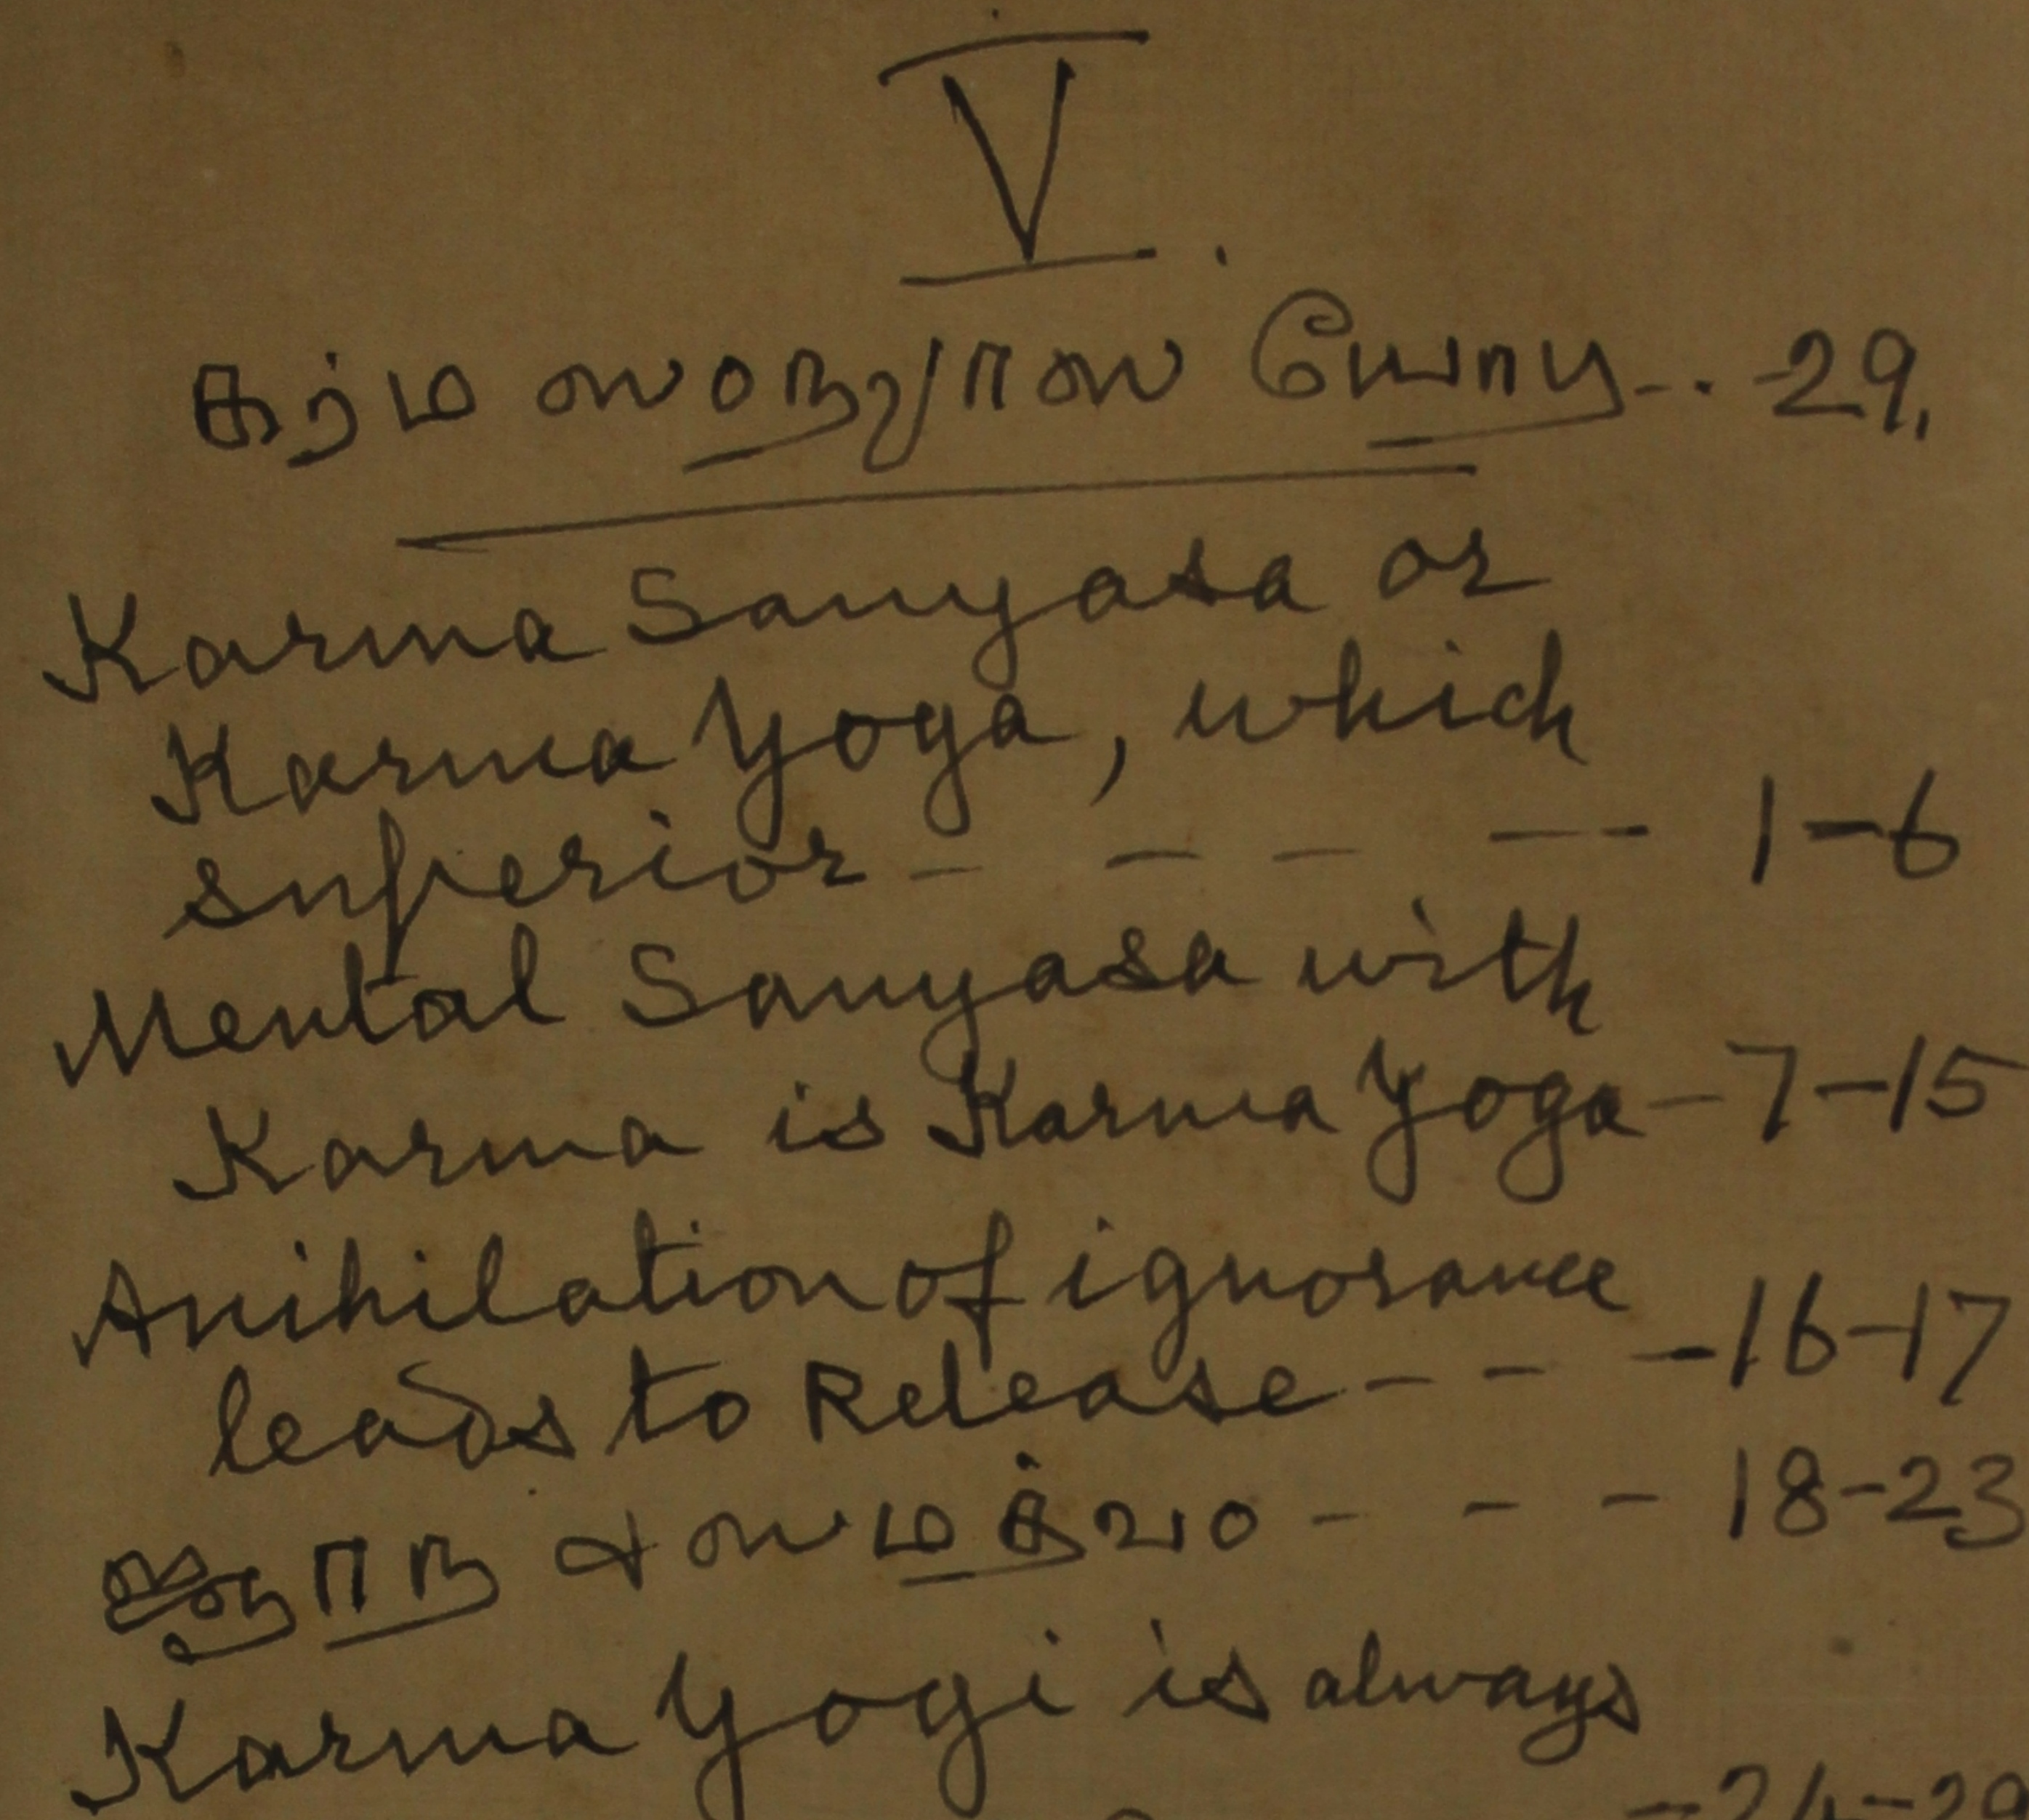 V.
கர்ம ஸந்யாஸ யோக -- 29.
Karma Sanyasa or
Karma Yoga, which
superior - - - - 1-6
Mental Sanyasa with
Karma is Karma Yoga - 7-15
Anihilation of ignorance
leads to Release - - - 16-17
- - - 18-23
Karma Yogi is always
- 24-29